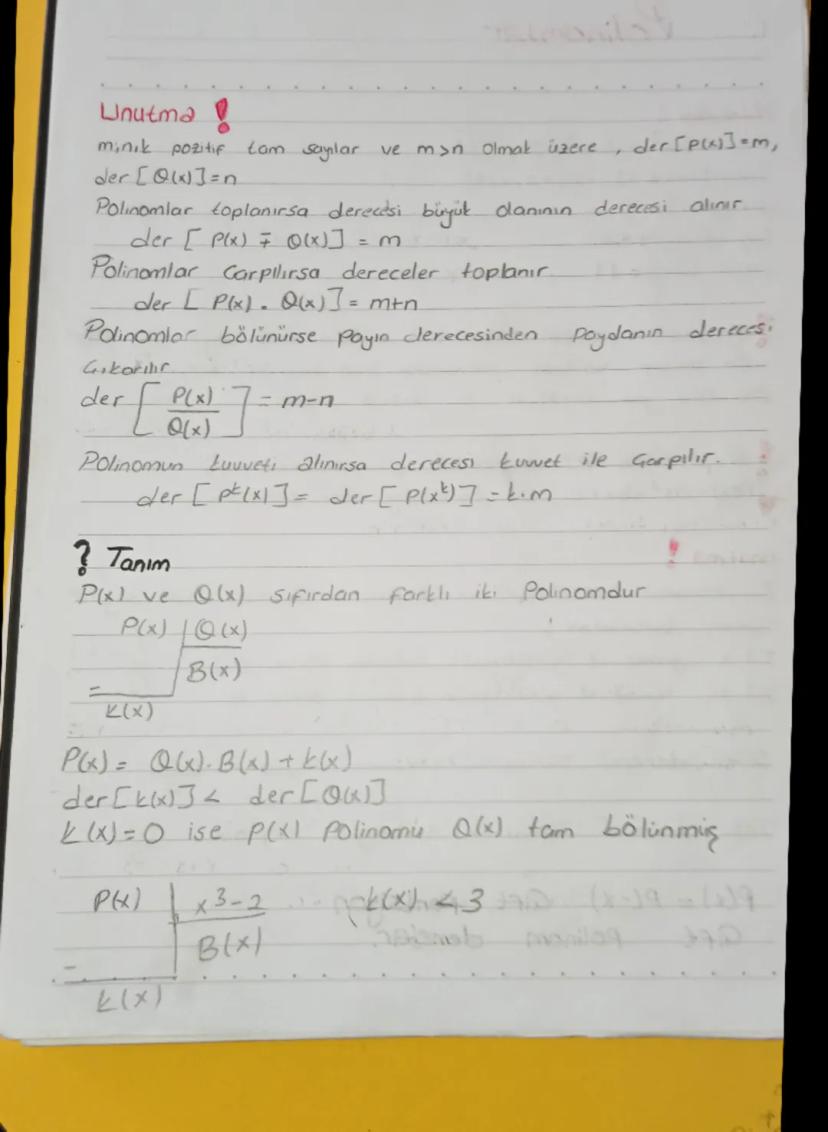 Unutma !
m,n,k pozitif tam sayılar ve m>n olmak üzere, der[P(x)]=m,
der[Q(x)]=n
Polinomlar toplanırsa derecesi büyük olanının derecesi alınır
der [ P(x) ∓ Q(x)] = m
Polinomlar Çarpılırsa dereceler toplanır
der [ P(x) . Q(x)] = m+n
Polinomlar bölünürse payın derecesinden paydanın derecesi
Çıkarılır
der [ P(x) / Q(x) ] = m-n
Polinomun kuvveti alınırsa derecesi kuvvet ile Çarpılır.
der [ Pᵏ(x)] = der [ P(xᵏ)] = k.m
? Tanım
P(x) ve Q(x) sıfırdan farklı iki Polinomdur
P(x) | Q(x)
B(x)
-
k(x)
P(x) = Q(x).B(x) + k(x)
der[k(x)] < der[Q(x)]
k(x)=0 ise P(x) Polinomu Q(x) tam bölünmüş
P(x) | x³-2 k(x) < 3
B(x)
-
k(x)